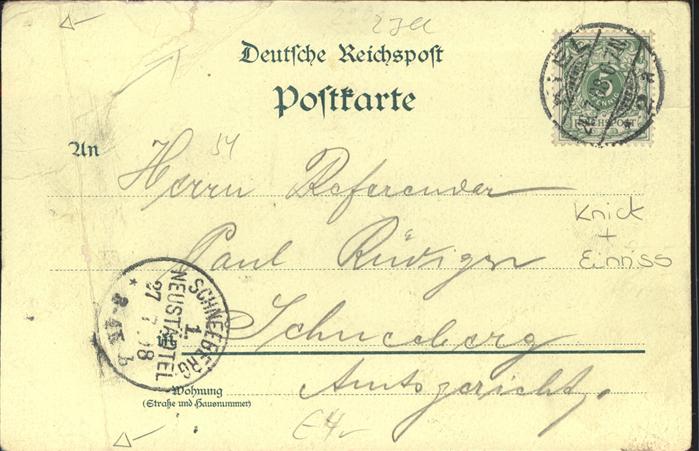 Deutsche Reichspost
Postkarte
KIEL
5
REICHSPOST
An
54
Herrn Referendar
Paul Rüdiger
Knick
+
Einriss
SCHNEEBERG
NEUSTÄDTEL
1.
27 7 98
* 8-9 V. b
in Schneeberg
Amtsgericht.
Wohnung
(Straße und Hausnummer)